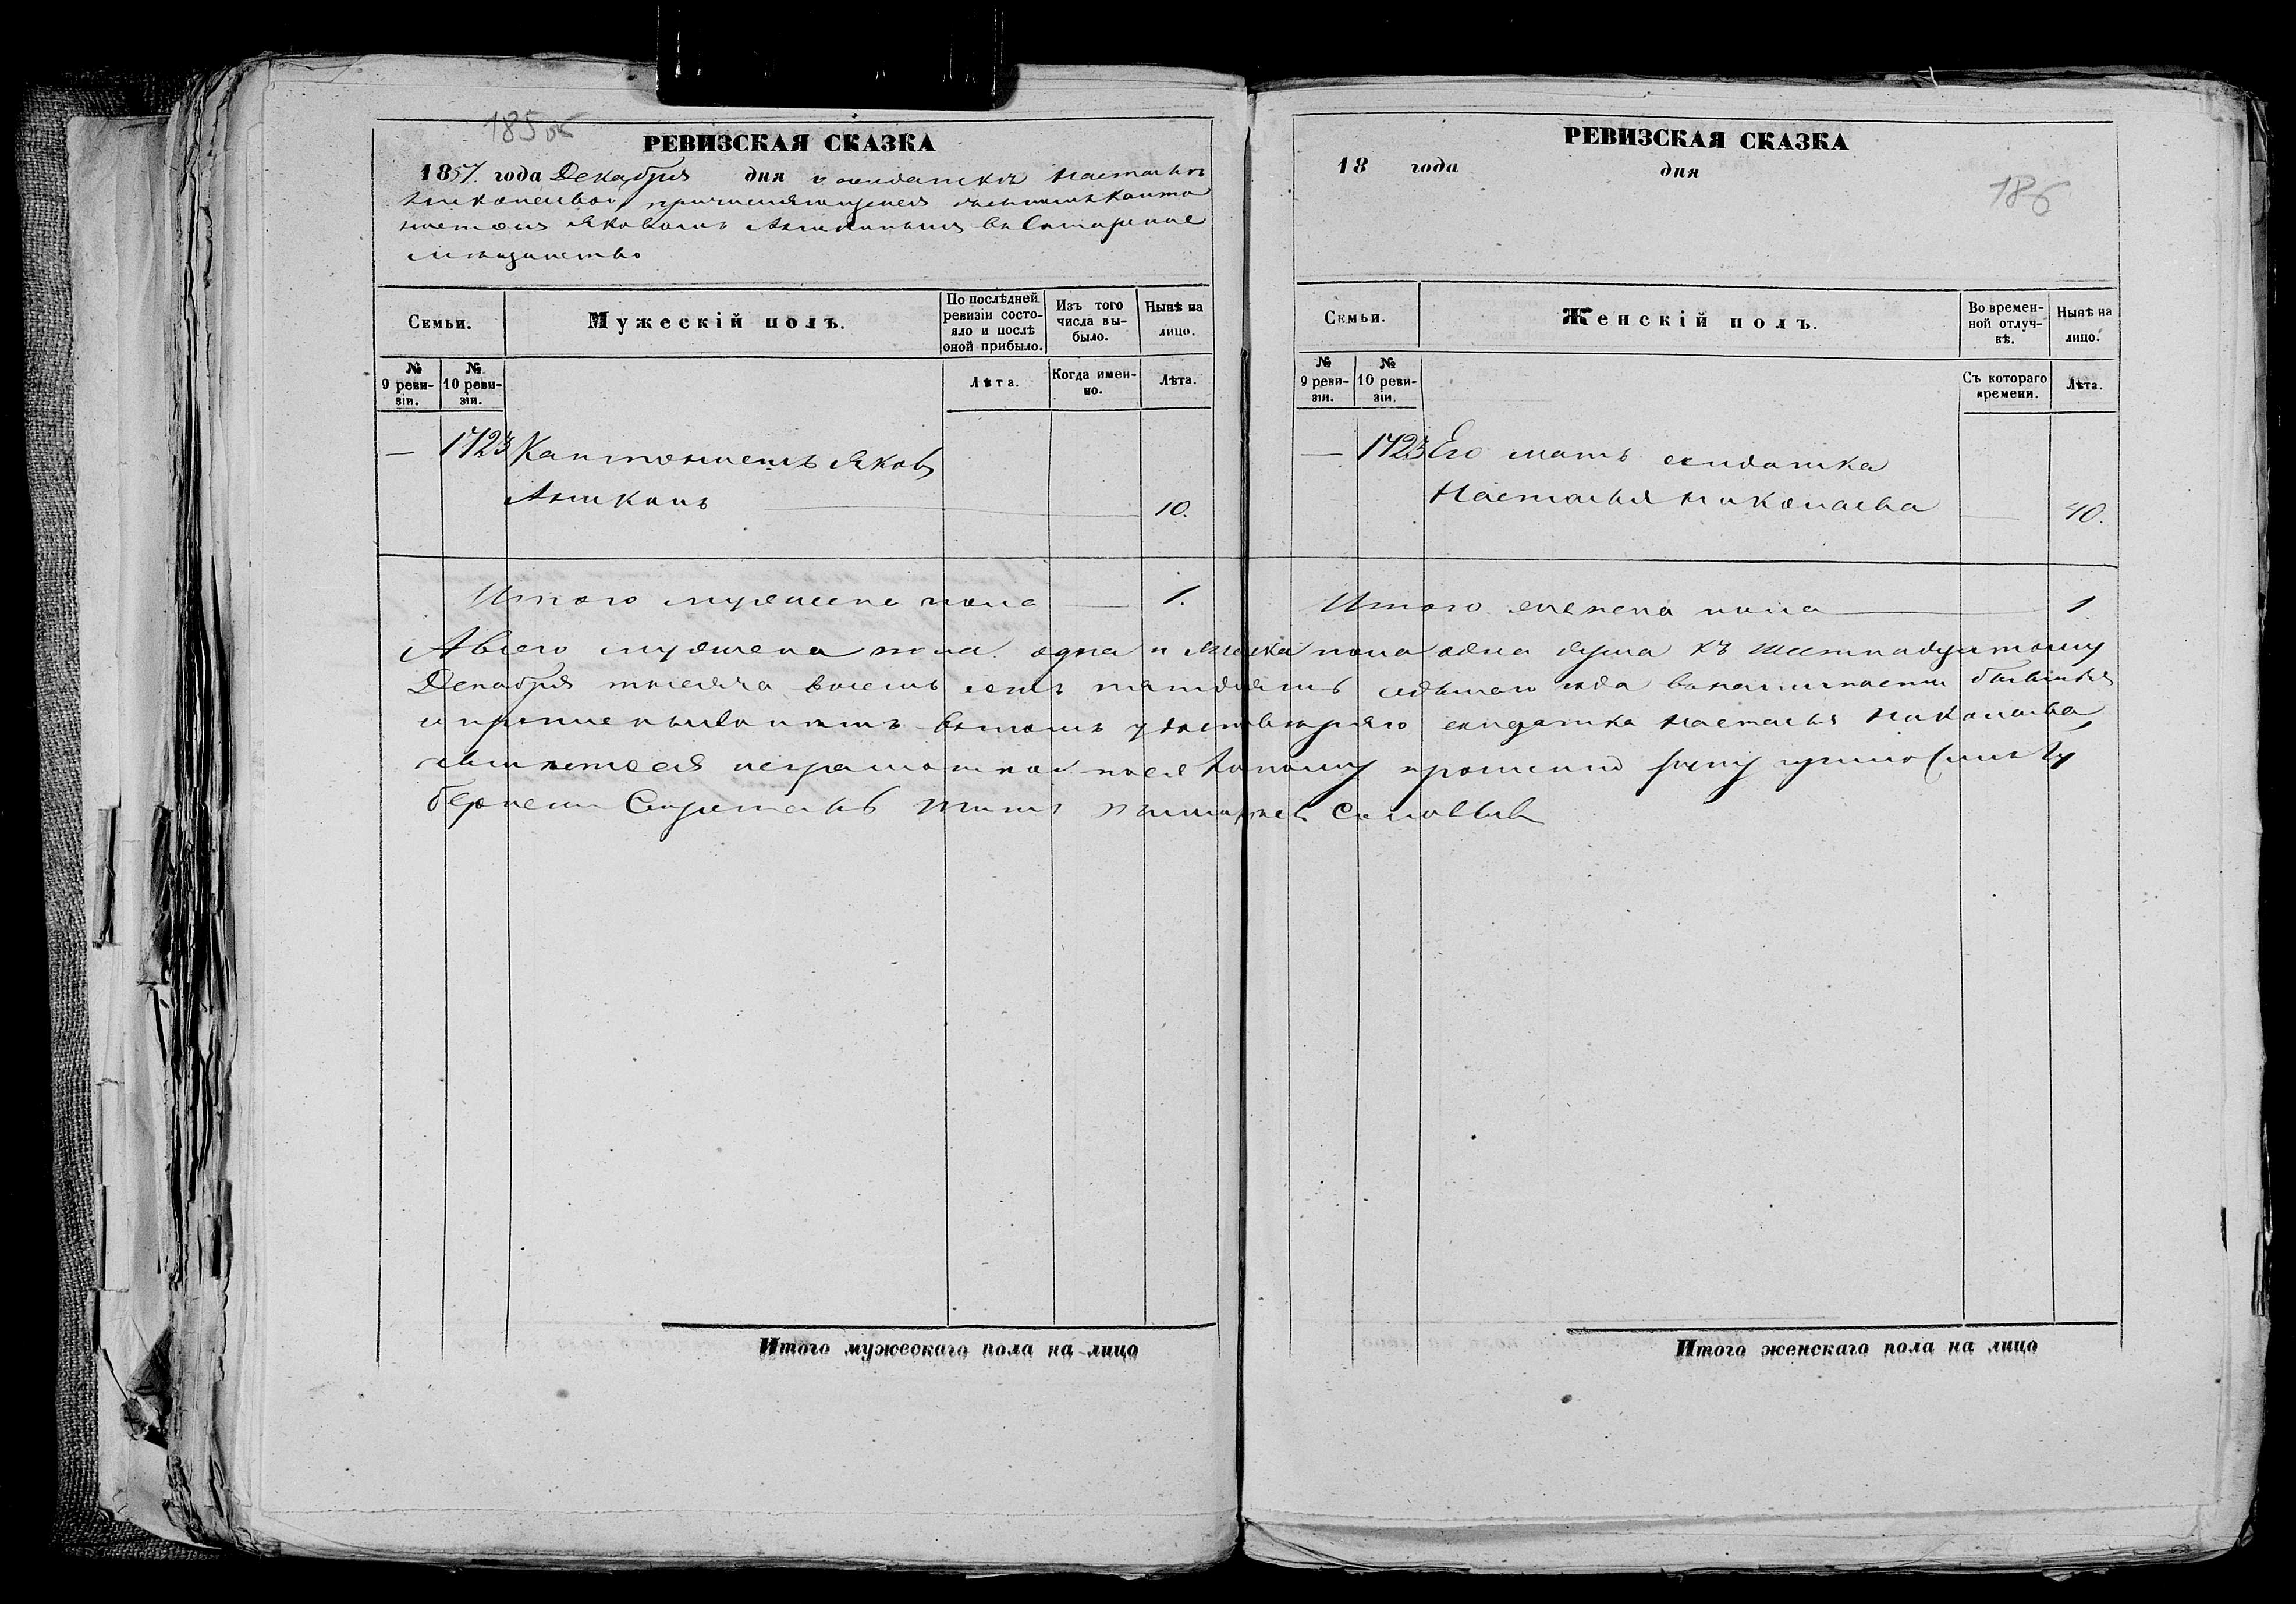 185 об
РЕВИЗСКАЯ СКАЗКА
1857. года Декабря дня о солдаткѣ Настальѣ
Николаевой причисляющейся съ сыномъ канто
нистомъ Яковомъ Аникинымъ въ Самарское
мѣщанство
Семьи.
Мужескій полъ.
По послѣдней ревизіи состояло и послѣ оной прибыло.
Изъ того числа выбыло.
Нынѣ на лицо.
№ 9 ревизіи.
№ 10 ревизіи.
Лѣта.
Когда именно.
Лѣта.
— 1723 Кантонистъ Яковъ
Аникинъ 10.
Итого мужеска пола 1.
РЕВИЗСКАЯ СКАЗКА
18 года дня
186
Семьи.
Женскій полъ.
Во временной отлучкѣ.
Нынѣ на лицо.
№ 9 ревизіи.
№ 10 ревизіи.
Съ котораго времени.
Лѣта.
— 1723 Его мать солдатка
Настасья Николаева 40.
Итого женска пола 1
А всего мужеска пола одна и женска пола одна душа къ шестнадцатому
Декабря тысяча восемь сотъ пятьдесятъ седьмаго года въ наличности
въ томъ солдатка Настасья Николаева,
неграмотной по ея личному прошенію руку приложилъ Гу
бернскій Секретарь Соловьев
Итого мужескаго пола на-лицо
Итого женскаго пола на лицо